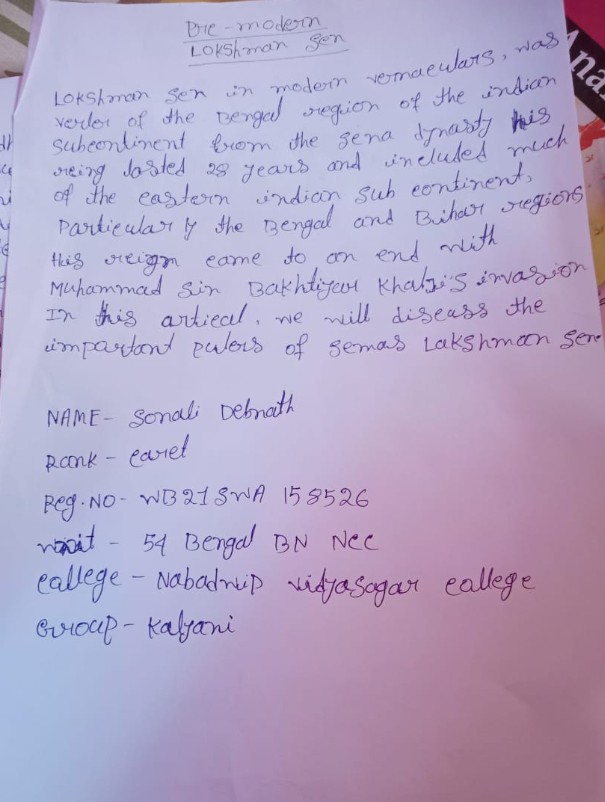 Pre-modern
LOKShman Sen
LOKShman Sen in modern vernaculars, was
ruler of the Bengal region of the indian
Subcontinent from the Sena dynasty his
reing lasted 28 years and included much
of the eastern indian Sub continent,
Particularly the Bengal and Bihar regions.
this reign came to an end with
Muhammad Sin Bakhtiyar Khalji's invasion
In this artical, we will discuss the
impartant rulers of semas Lakshman Sen
NAME- Sonali Debnath
Rank - Cadet
Reg.NO- WB21SWA 158526
unit - 54 Bengal BN NCC
Callege - Nabadwip Vidyasagar College
Group - Kalyani
Ana